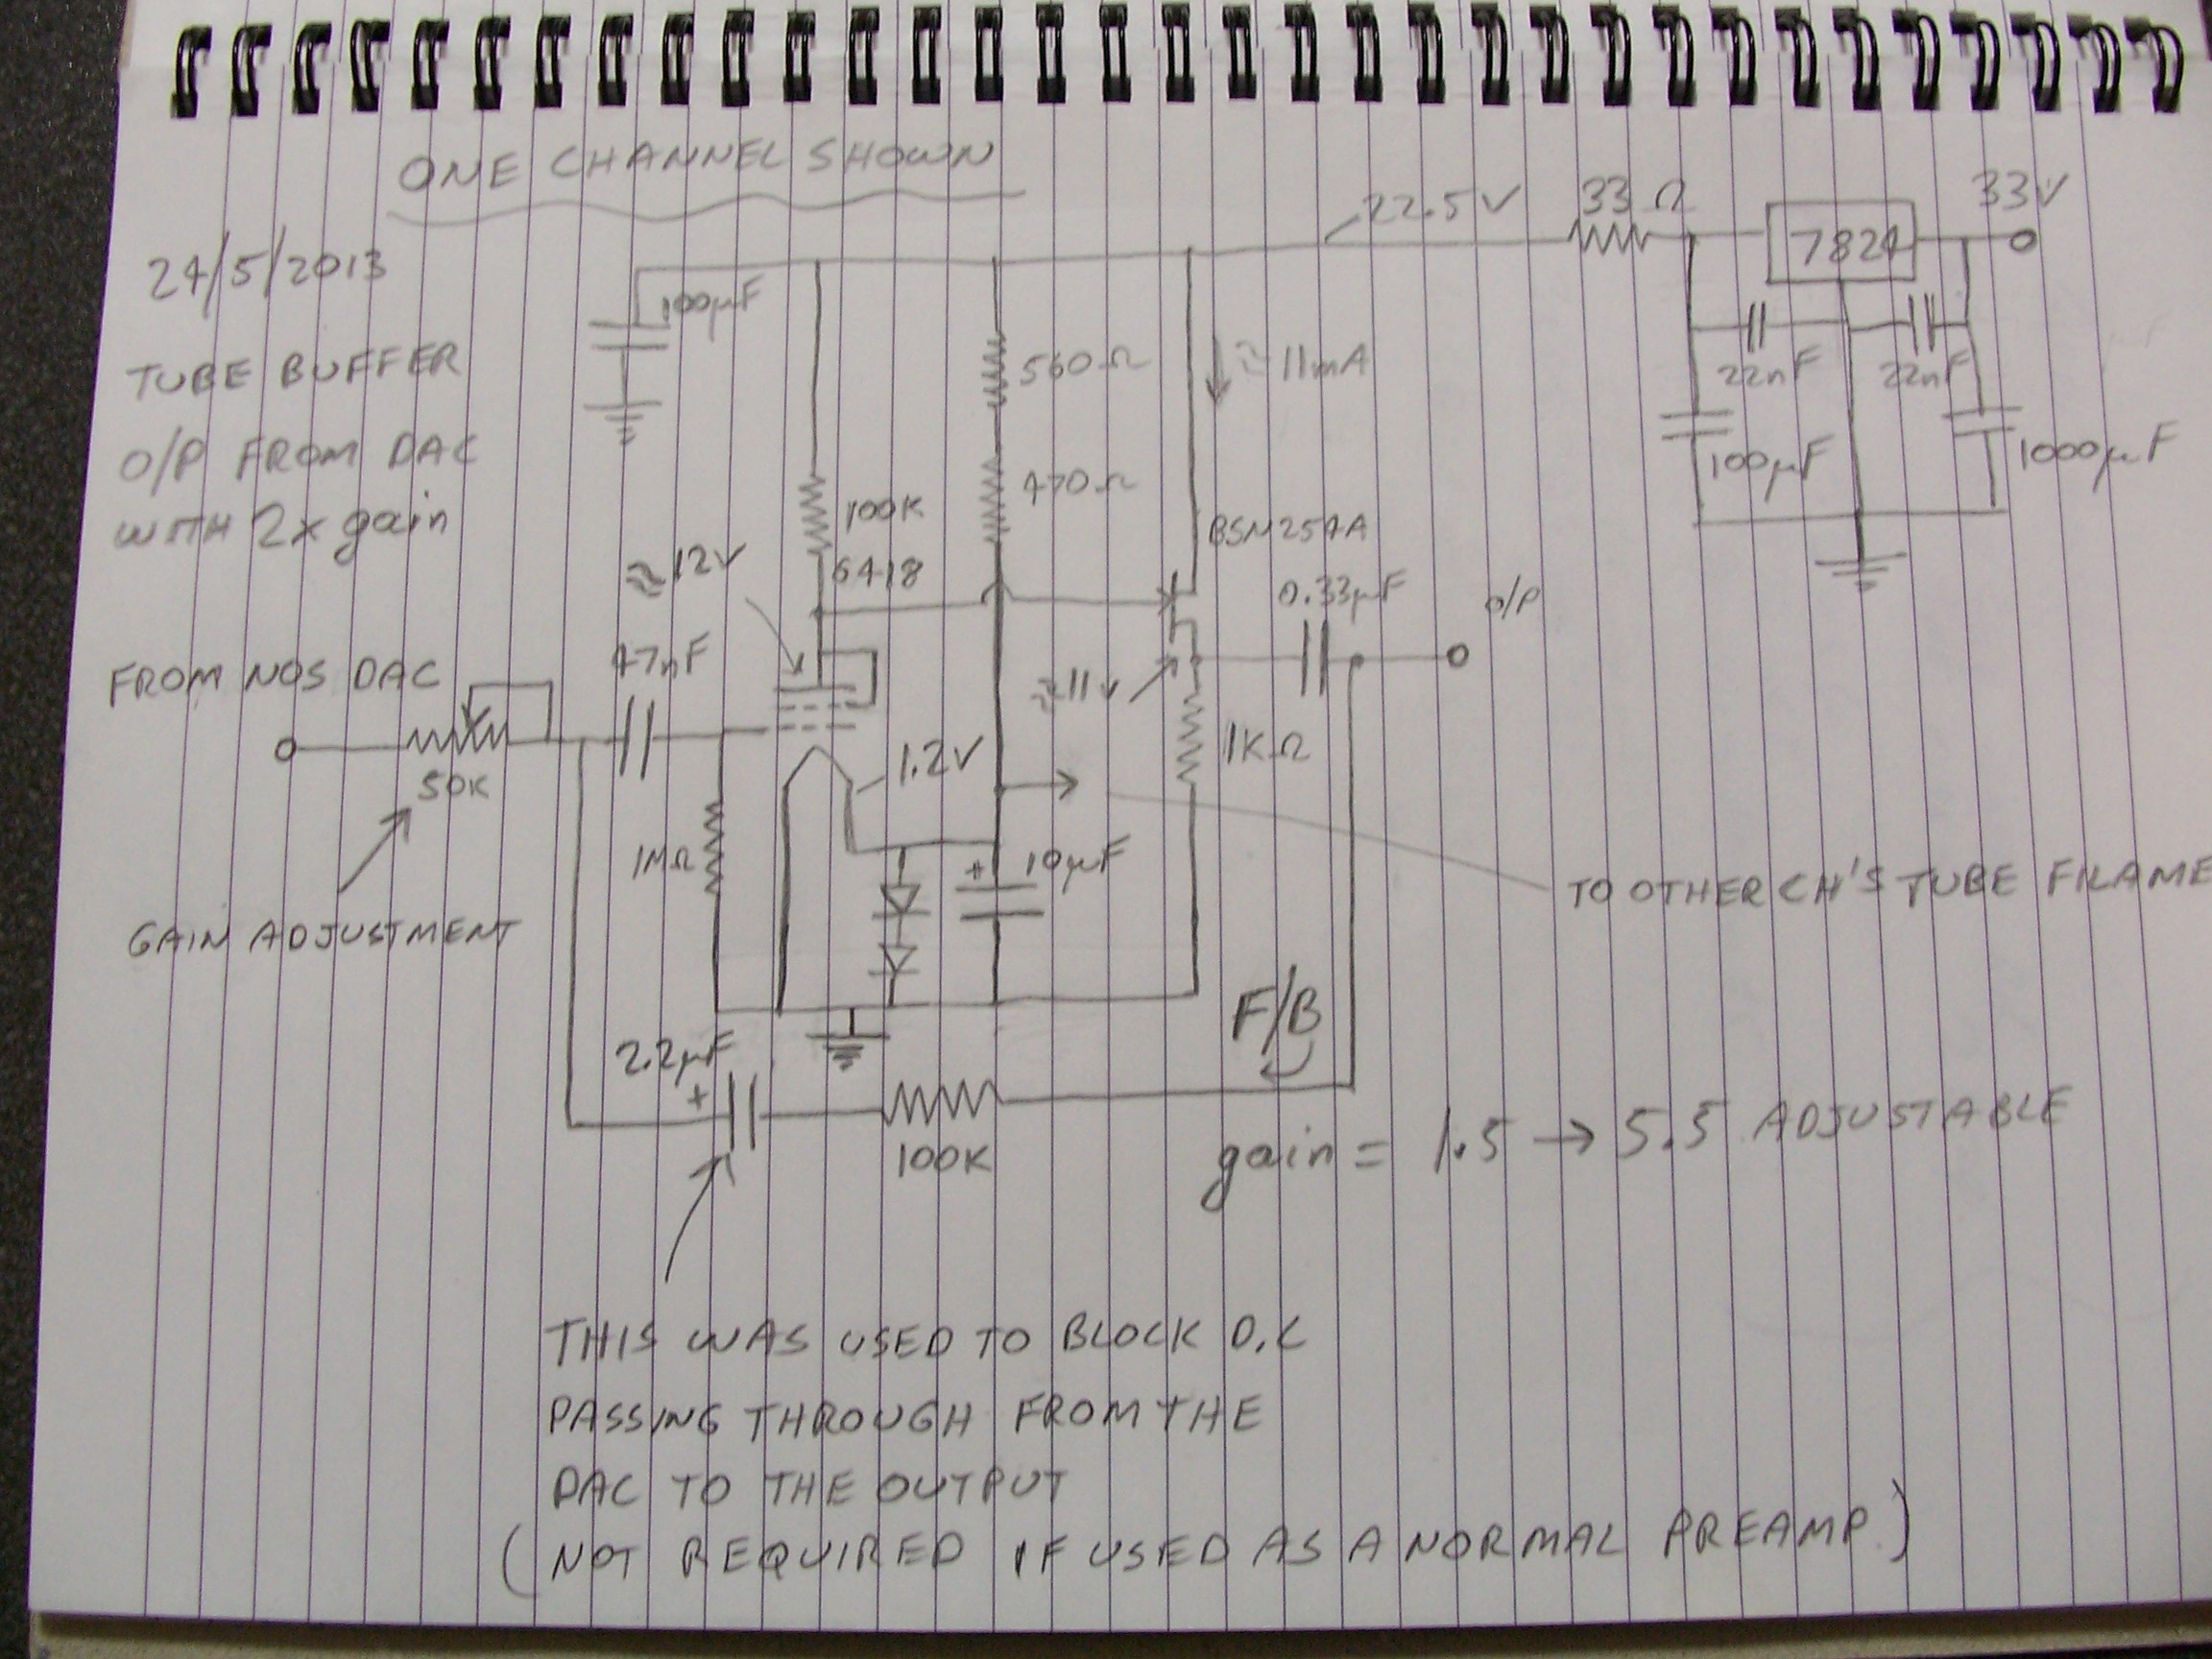 ONE CHANNEL SHOWN
24/5/2013
TUBE BUFFER
O/P FROM DAC
WITH 2x gain
22.5V
33Ω
7824
33V
100μF
560Ω
≈ 11mA
22nF
22nF
470Ω
100μF
1000μF
100K
BSN254A
≈ 12V
6418
0.33μF
O/P
FROM NOS DAC
47nF
≈ 11V
1KΩ
50K
1.2V
1MΩ
+ 10μF
TO OTHER CH'S TUBE FILAME
GAIN ADJUSTMENT
F/B
2.2μF
+
100K
gain = 1.5 → 5.5 ADJUSTABLE
THIS WAS USED TO BLOCK D.C
PASSING THROUGH FROM THE
DAC TO THE OUTPUT
(NOT REQUIRED IF USED AS A NORMAL PREAMP.)